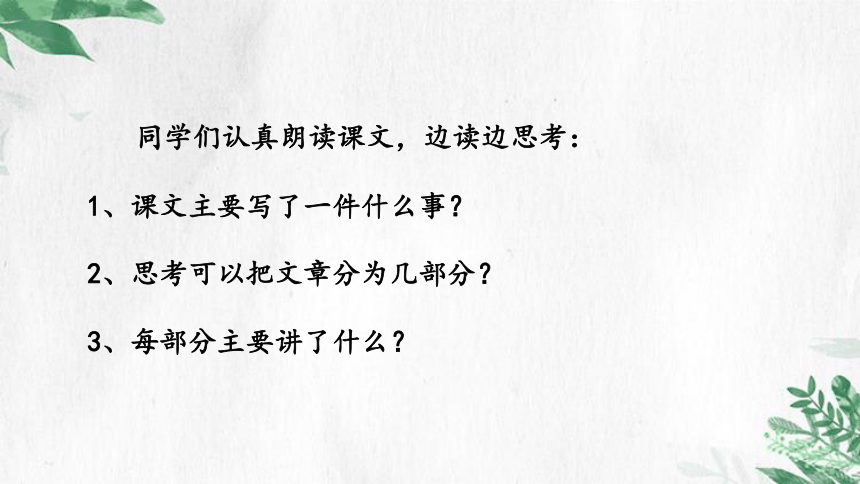 同学们认真朗读课文，边读边思考：
1、课文主要写了一件什么事？
2、思考可以把文章分为几部分？
3、每部分主要讲了什么？